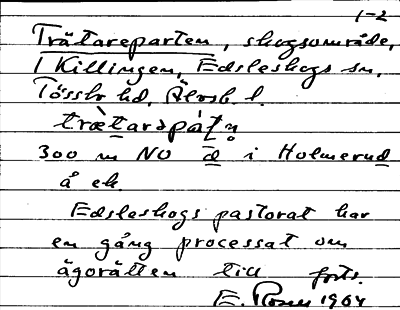 1-2
Trätareparten, skogsområde,
/ Killingen, Edsleskogs sn,
Tössbo hd, Älvsb. l.
300 m NO d i Holmerud
å ek
Edsleskogs pastorat har
en gång processat om
ägorätten till forts.
E. Rosen 1964